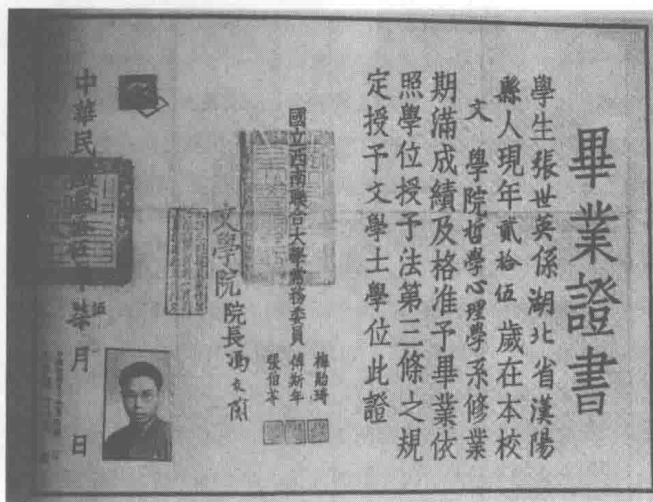 畢業證書
學生張世英係湖北省漢陽
縣人現年貳拾伍歲在本校
文學院哲學心理學系修業
期滿成績及格准予畢業依
照學位授予法第三條之規
定授予文學士學位此證
國立西南聯合大學常務委員
梅貽琦
傅斯年
張伯苓
文學院院長馮友蘭
中華民國 年 月 日